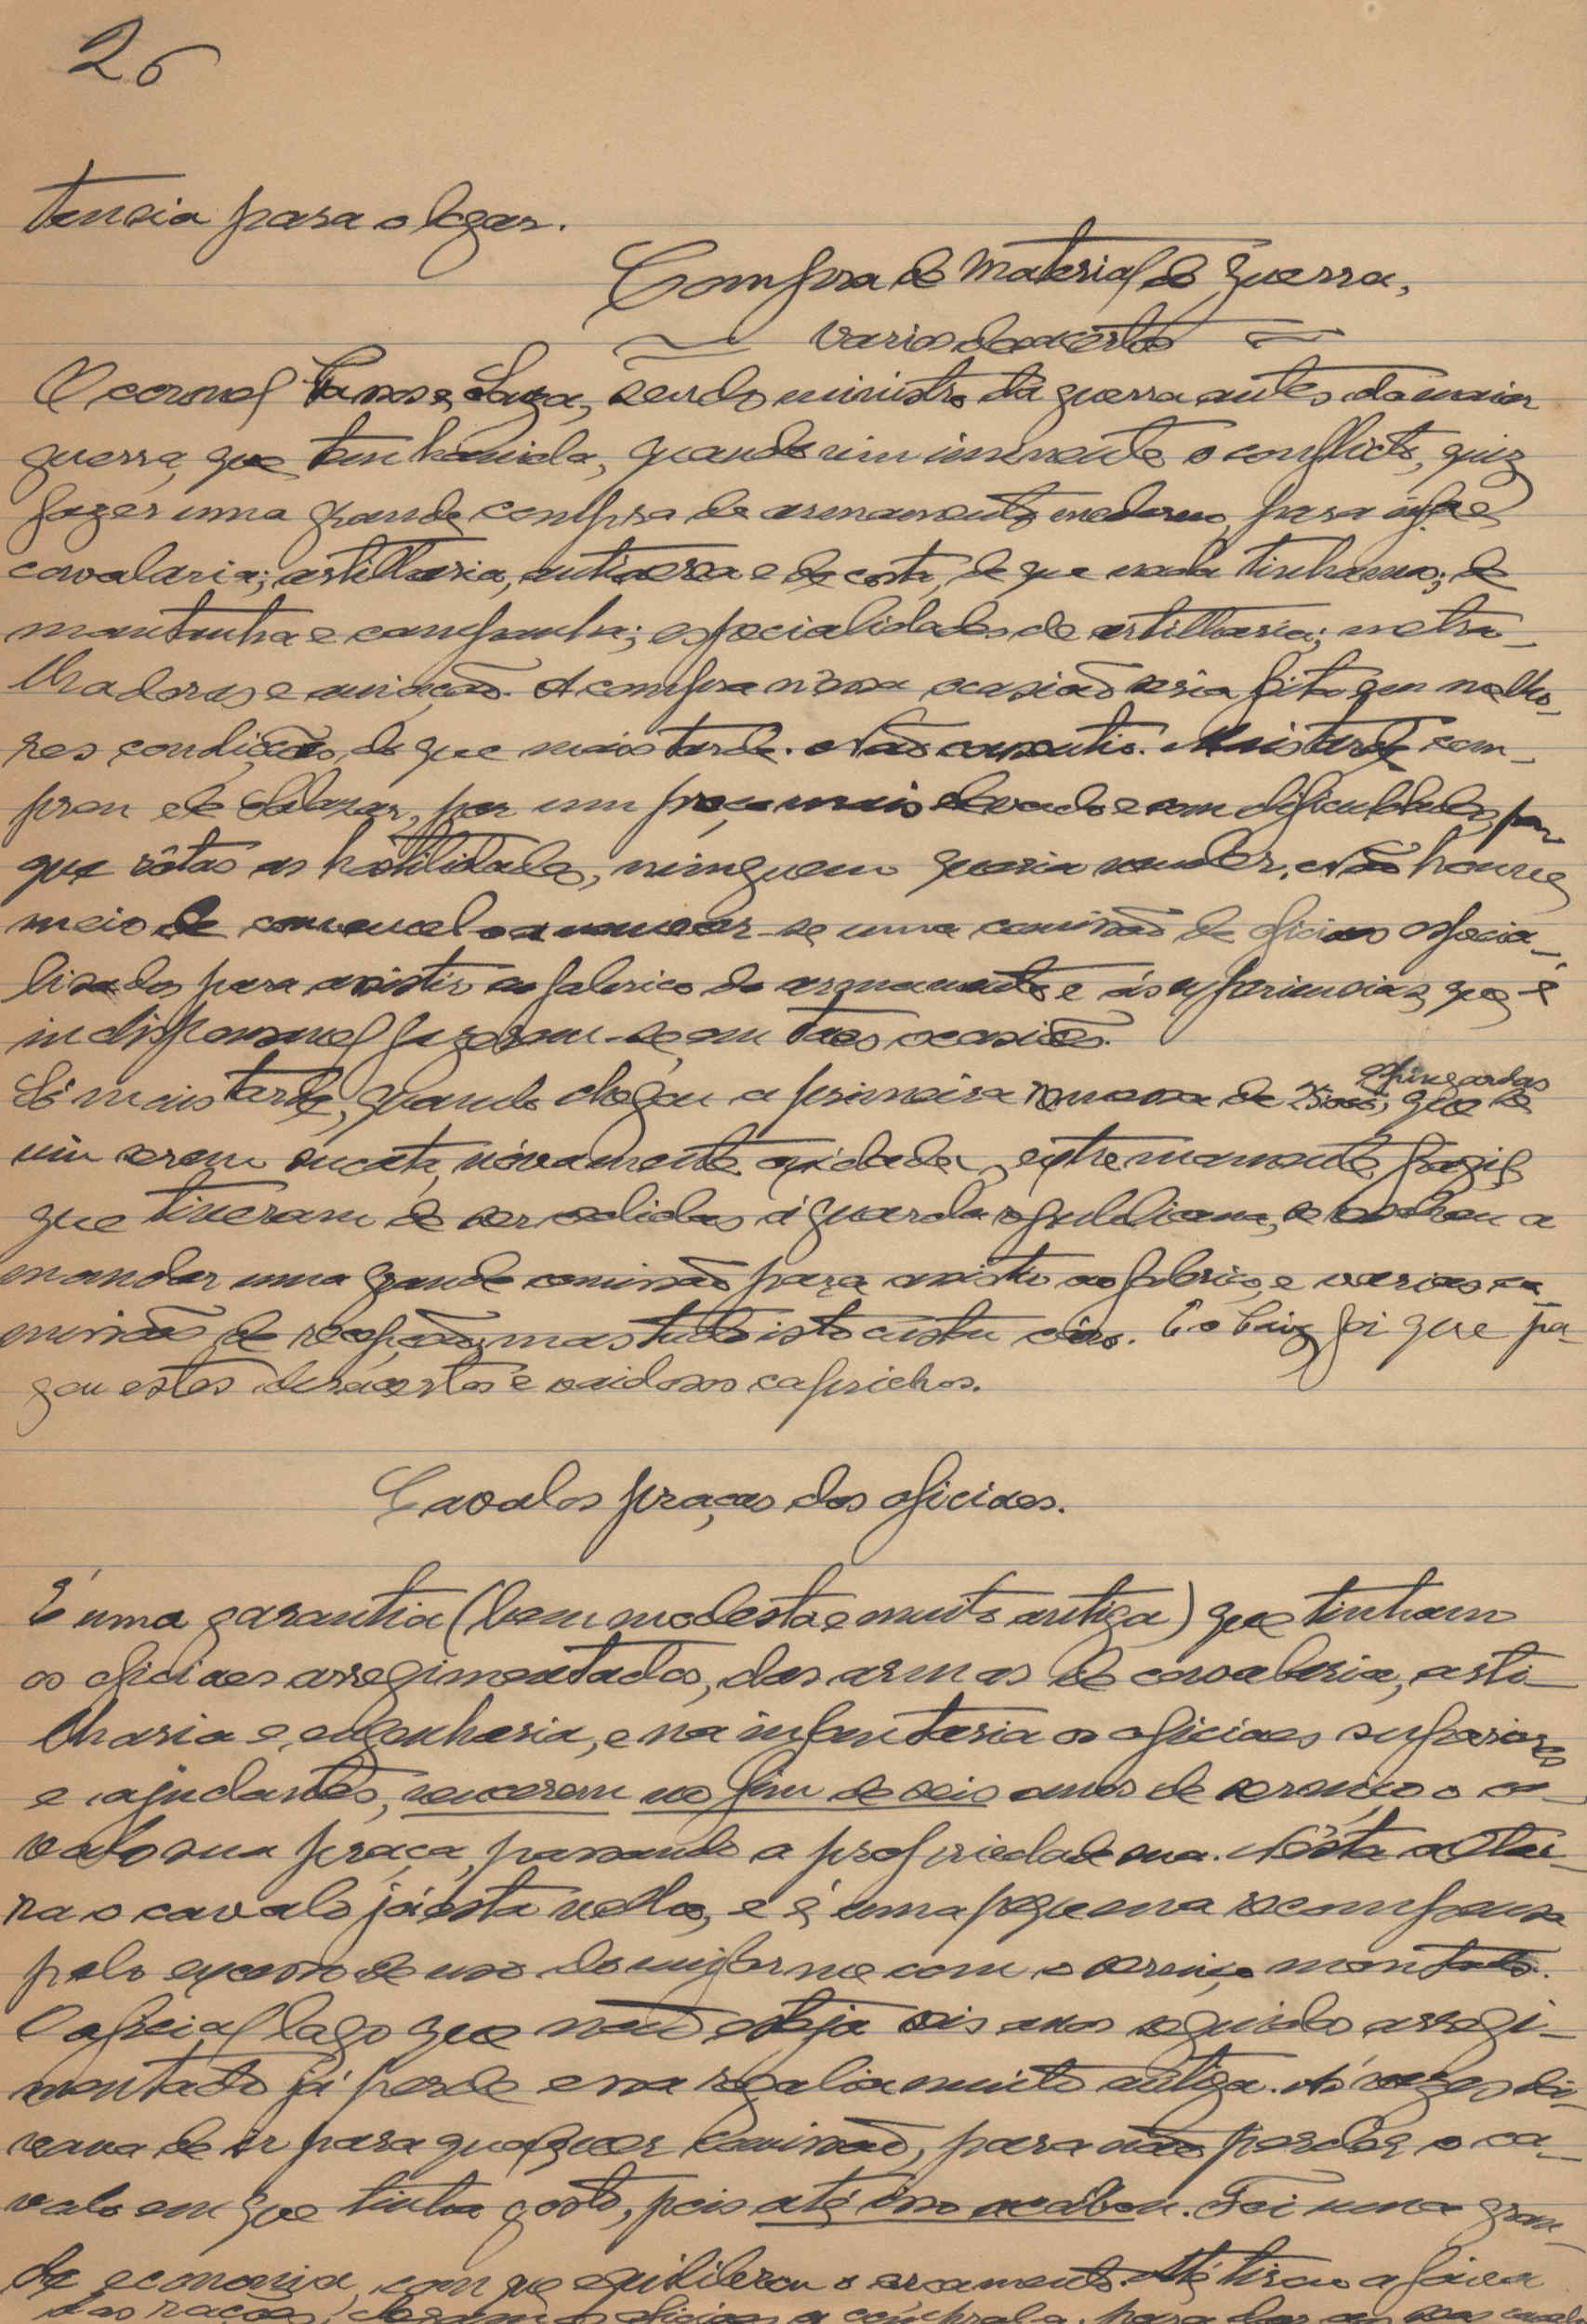 26
tencia para o logar.
Compra de material de guerra,
varios desacertos
O coronel Passos e Souza, sendo ministro da guerra antes da maior
guerra, que tem havido, quando viu iminente o conflicto, quiz
fazer uma grande compra de armamento moderno, para infª e
cavalaria; artilharia, antiaerea e de costa, de que nada tinhamos; de
montanha e campanha; especialidades de artilharia; metra-
lhadoras e aviação. A compra n'essa ocasião seria feita em melho-
res condições, do que mais tarde. Não consentio. Mais tarde com-
prou ele Salazar, por um preço mais elevado e com dificuldades, por
que rôtas as hostilidades, ninguem queria vender. Não houve
meio de convencel-o a nomear-se uma comissão de oficiaes especia-
lisados para assistir ao fabrico do armamento e ás experiencias, que é
indispensavel fazerem-se em taes ocasiões.
Só mais tarde, quando chegou a primeira remessa de espingardas, que se
viu serem sucata, nóvamente oxidada, extremamente fragil
que tiveram de ser cedidas á guarda republicana, se resolveu a
mandar uma grande comissão para assistir ao fabrico, e varias co-
missões de recepção, mas tudo isto custou caro. E o Paiz foi que pa-
gou estes desacertos e vaidosos caprichos.
Cavalos praças dos oficiaes.
É uma garantia (bem modesta e muito antiga) que tinham
os oficiaes arregimentados, das armas de cavalaria, arti-
lharia e engenharia, e na infantaria os oficiaes superiores
e ajudantes, vencerem no fim de seis anos de serviço o ca-
valo sua praça, passando a propriedade sua. N'esta altu-
ra o cavalo já está velho, e é uma pequena recompensa
pelo excesso de uso do uniforme com o serviço montado.
O oficial logo que não esteja seis anos seguidos arregi-
mentado já perde essa regalia muito antiga. Ás vezes dei-
xava de ir para qualquer comissão, para não perder o ca-
valo em que tinha gosto, pois até isso acabou. Foi uma gran-
de economia, com que equilibrou o orçamento. Até tirou a faixa
das rações,